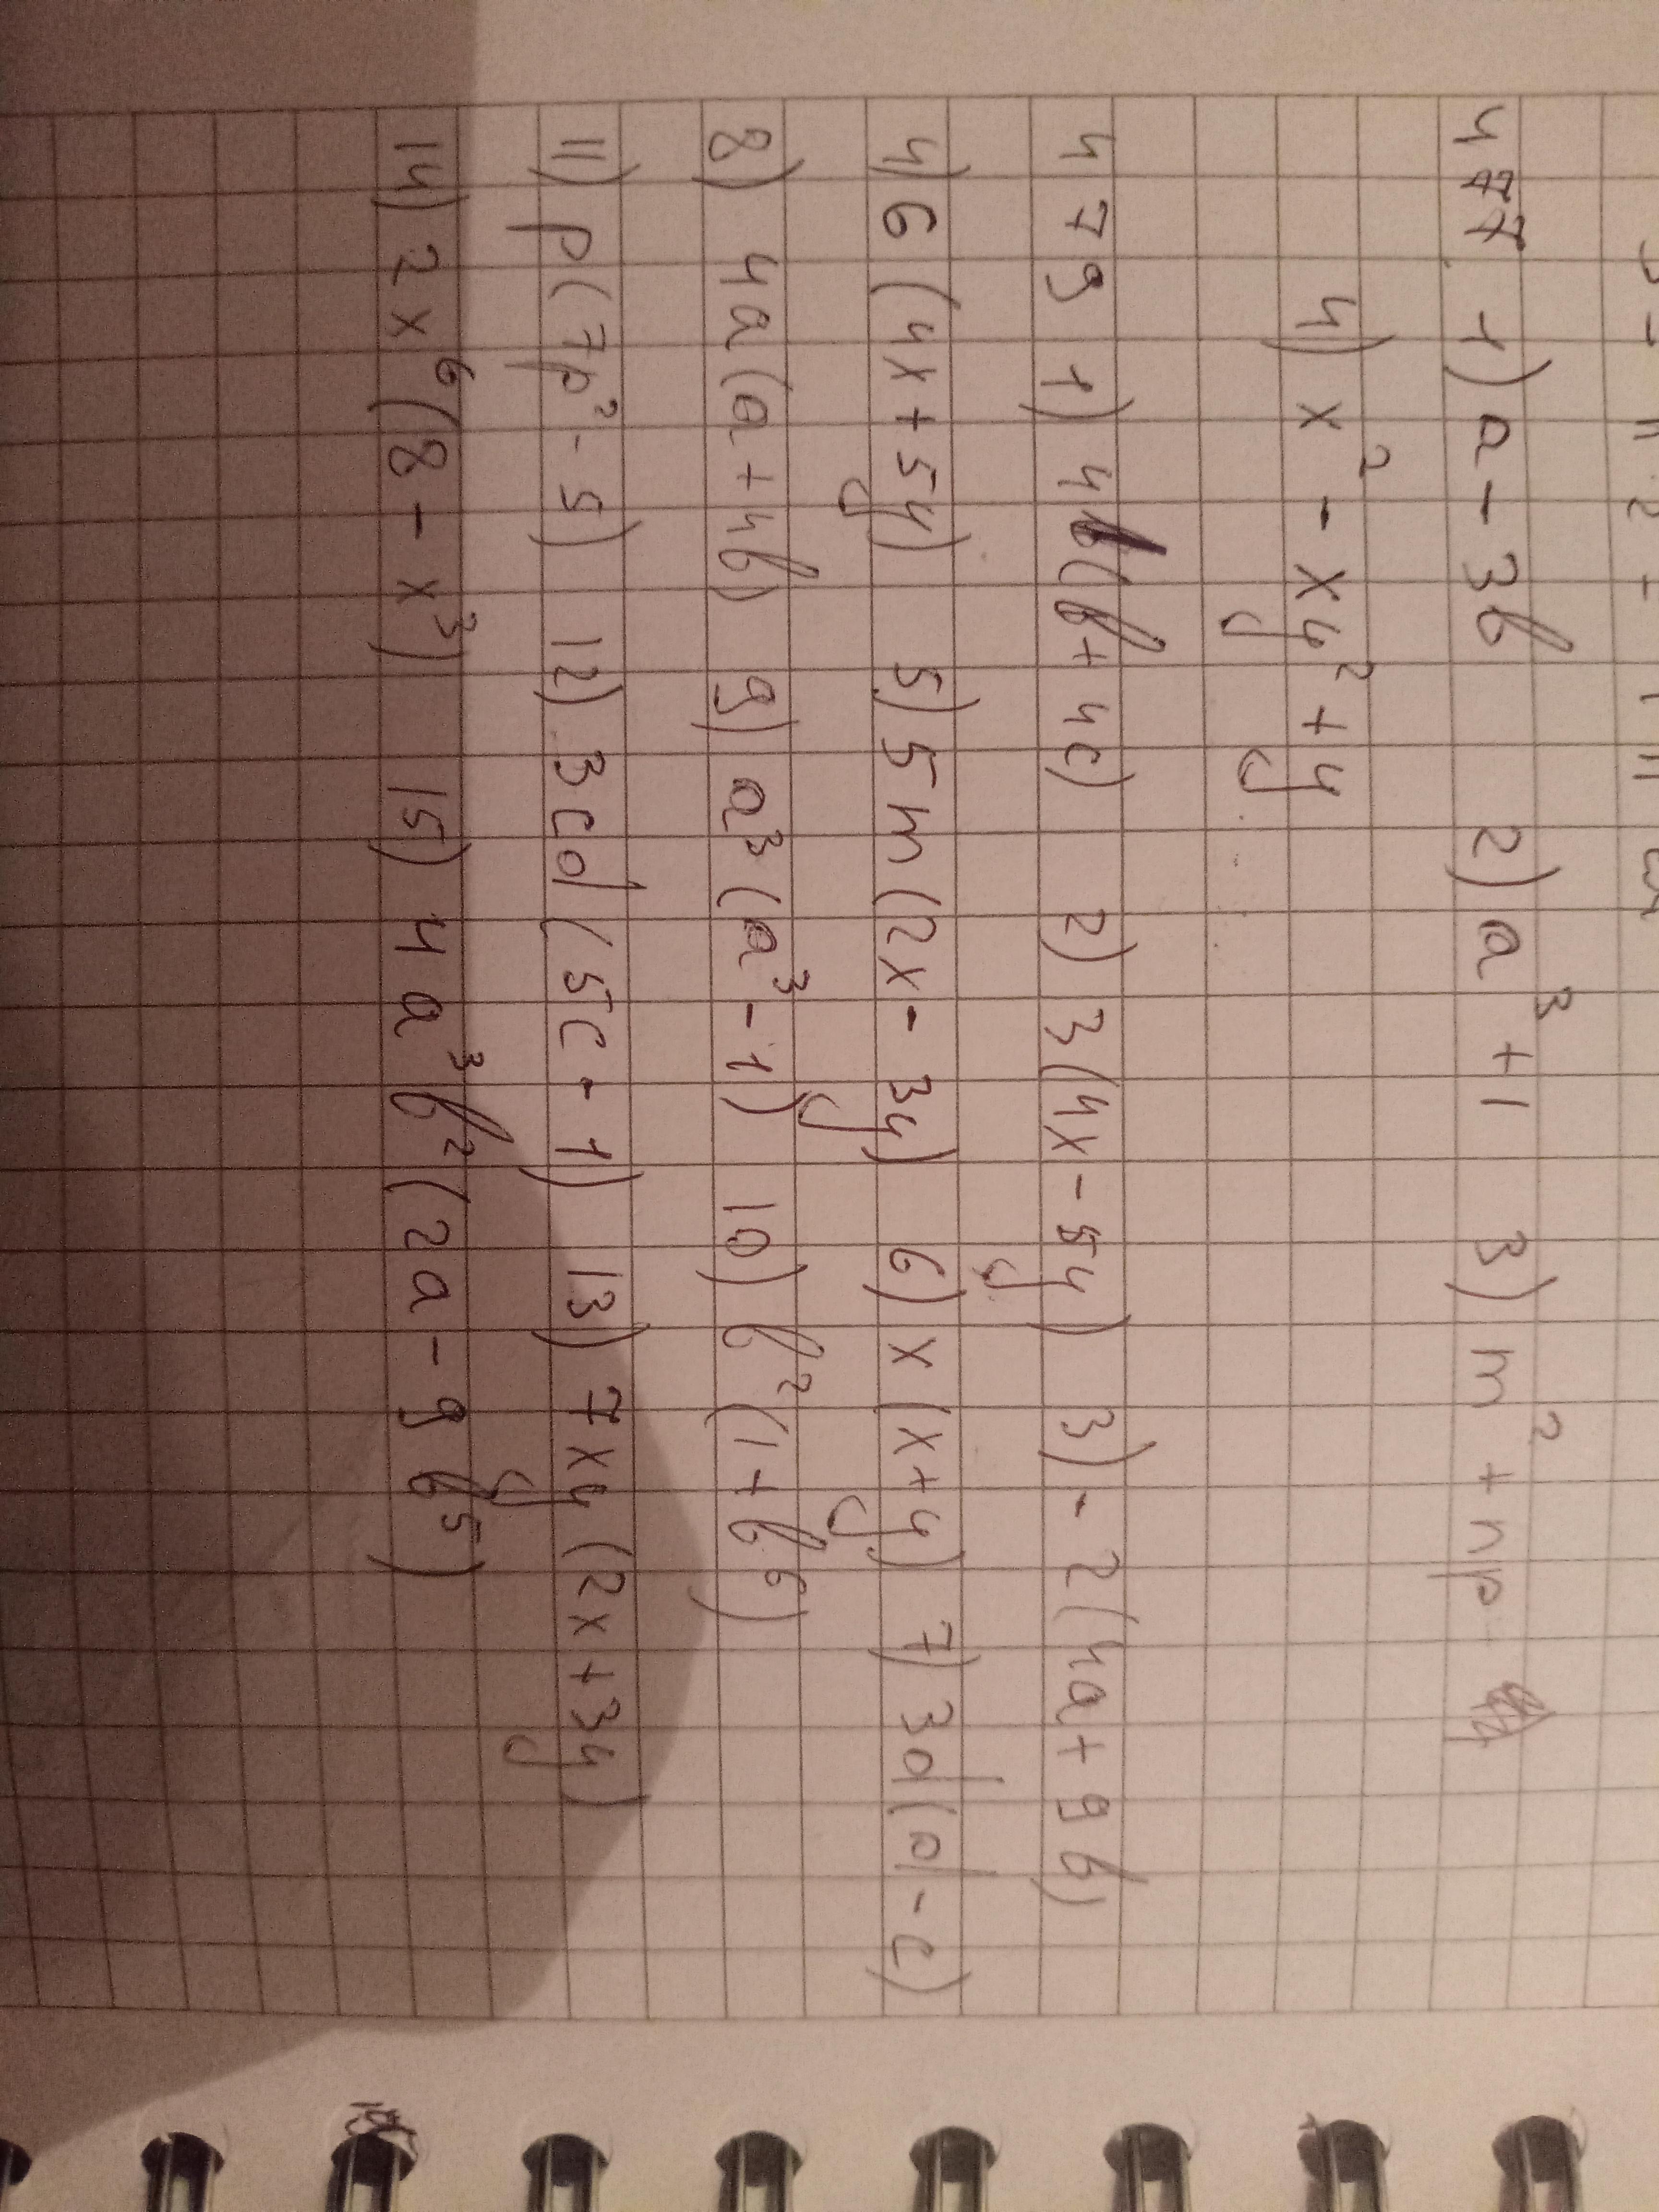 477 1) a - 3b 2) a³ + 1 3) m² + np -
4) x² - xy² + y
479 1) 4b(b + 4c) 2) 3(4x - 5y) 3) - 2(4a + 9b)
4) 6(4x + 5y) 5) 5m(2x - 3y) 6) x(x + y) 7) 3d(d - c)
8) 4a(a + 4b) 9) a³(a³ - 1) 10) b²(1 + b⁶)
11) p(7p² - 9) 12) 3cd(5c - 1) 13) 7xy(2x + 3y)
14) 2x⁶(8 - x³) 15) 4a³b²(2a - 9b⁵)